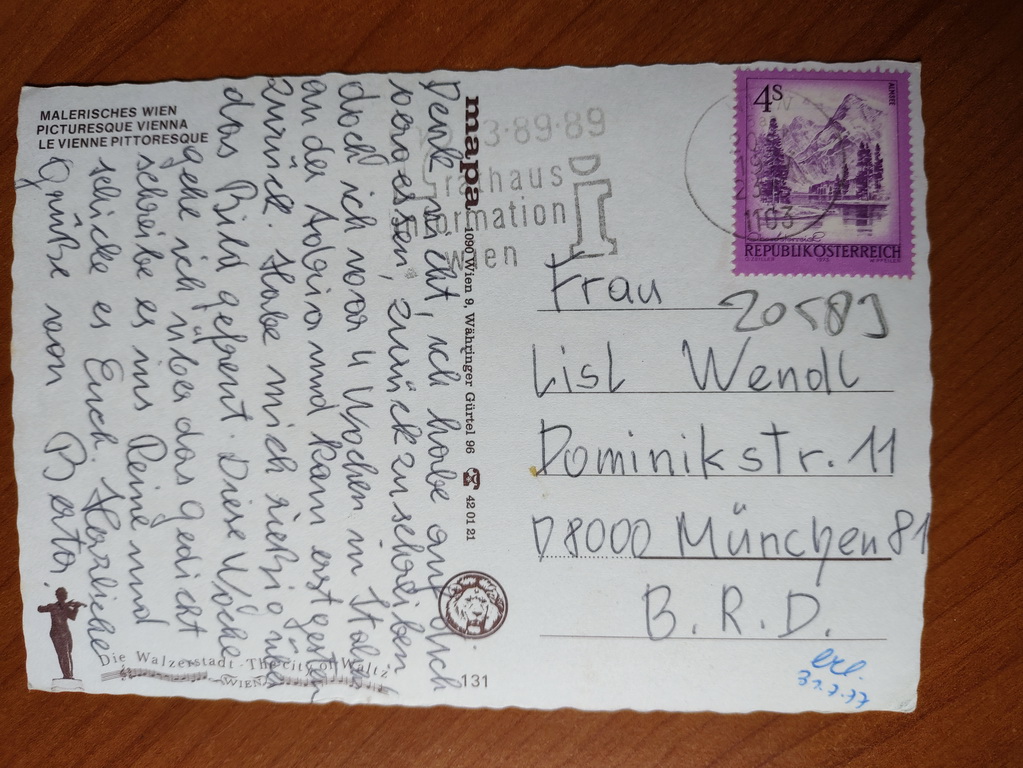 MALERISCHES WIEN
PICTURESQUE VIENNA
LE VIENNE PITTORESQUE
Denk nicht, ich habe auf Dich
vergessen, zurückzuschreiben
doch ich war 4 Wochen in Italien
an der Adria und kam erst gestern
zurück. Habe mich riesig über
das Bild gefreut. Diese Woche
gehe ich über das Gedicht
schreibe es ins Reine und
schicke es Euch. Herzliche
Grüße von
mapa 1090 Wien 9, Währinger Gürtel 96 ☎ 42 01 21
Die Walzerstadt - The city of Waltz
WIEN
131
3·89·89
rathaus
information
wien
1103
4S
ALMSEE
REPUBLIK ÖSTERREICH
Frau
20589
Lisl Wendl
Dominikstr. 11
D 8000 München 81
B. R. D.
erl.